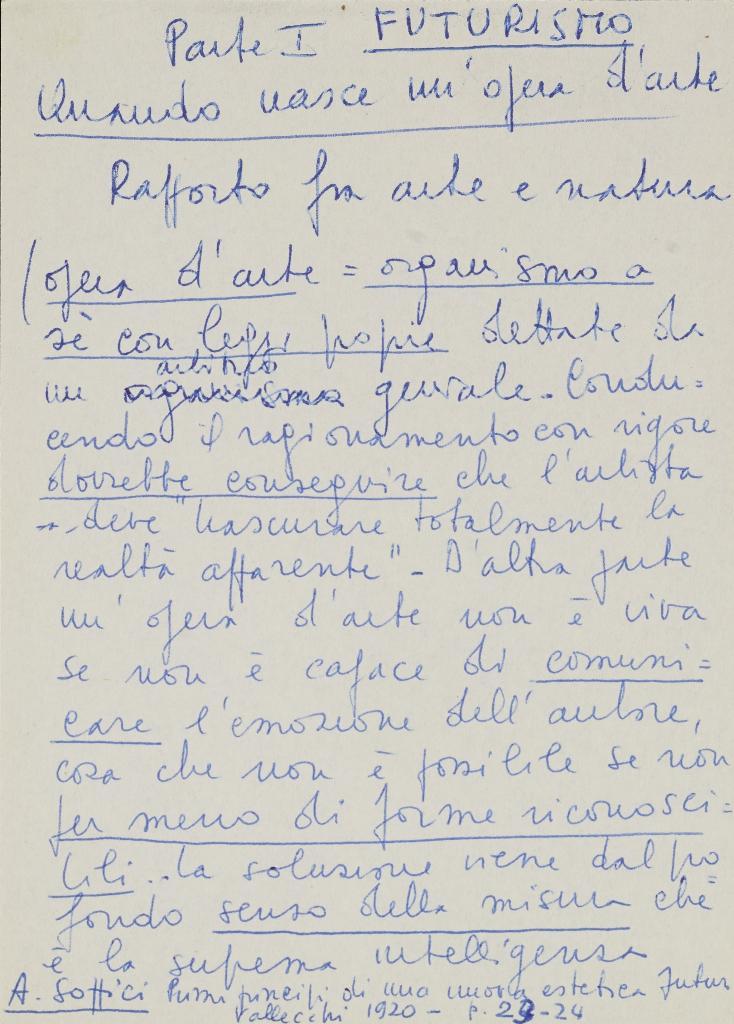 Parte I FUTURISMO
Quando nasce un'opera d'arte
Rapporto fra arte e natura
(opera d'arte = organismo a
sè con leggi proprie dettate da
artistico
un organismo geniale - Condu=
cendo il ragionamento con rigore
dovrebbe conseguire che l'artista
... deve "trascurare totalmente la
realtà apparente" - D'altra parte
un'opera d'arte non è viva
se non è capace di comuni=
care l'emozione dell'autore,
cosa che non è possibile se non
per mezzo di forme riconosci=
bili .. la soluzione viene dal pro
fondo senso della misura che
è la suprema intelligenza
A. Soffici Primi principi di una nuova estetica Futur
Vallecchi 1920 - p. 23-24